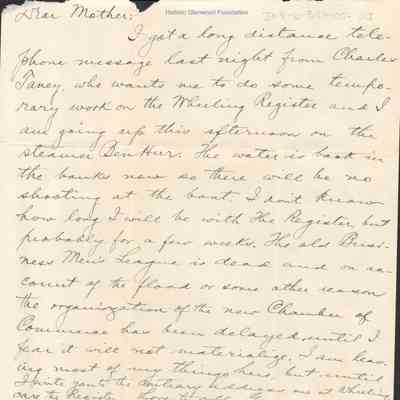 Historic Glenwood Foundation
Dear Mother:
I got a long distance tele-
phone message last night from Charles
Taney, who wants me to do some tempo-
rary work on the Wheeling Register and I
am going up this afternoon on the
steamer Ben Hur. The water is back in
the banks now so there will be no
shooting at the boat. I don't know
how long I will be with the Register, but
probably for a few weeks. The old Busi-
ness Men's League is dead and on ac-
count of the flood or some other reason
the organization of the new Chamber of
Commerce has been delayed until I
fear it will not materialize. I am leav-
ing most of my things here, but until
I write you to the contrary address me at Wheeling
care the Register.